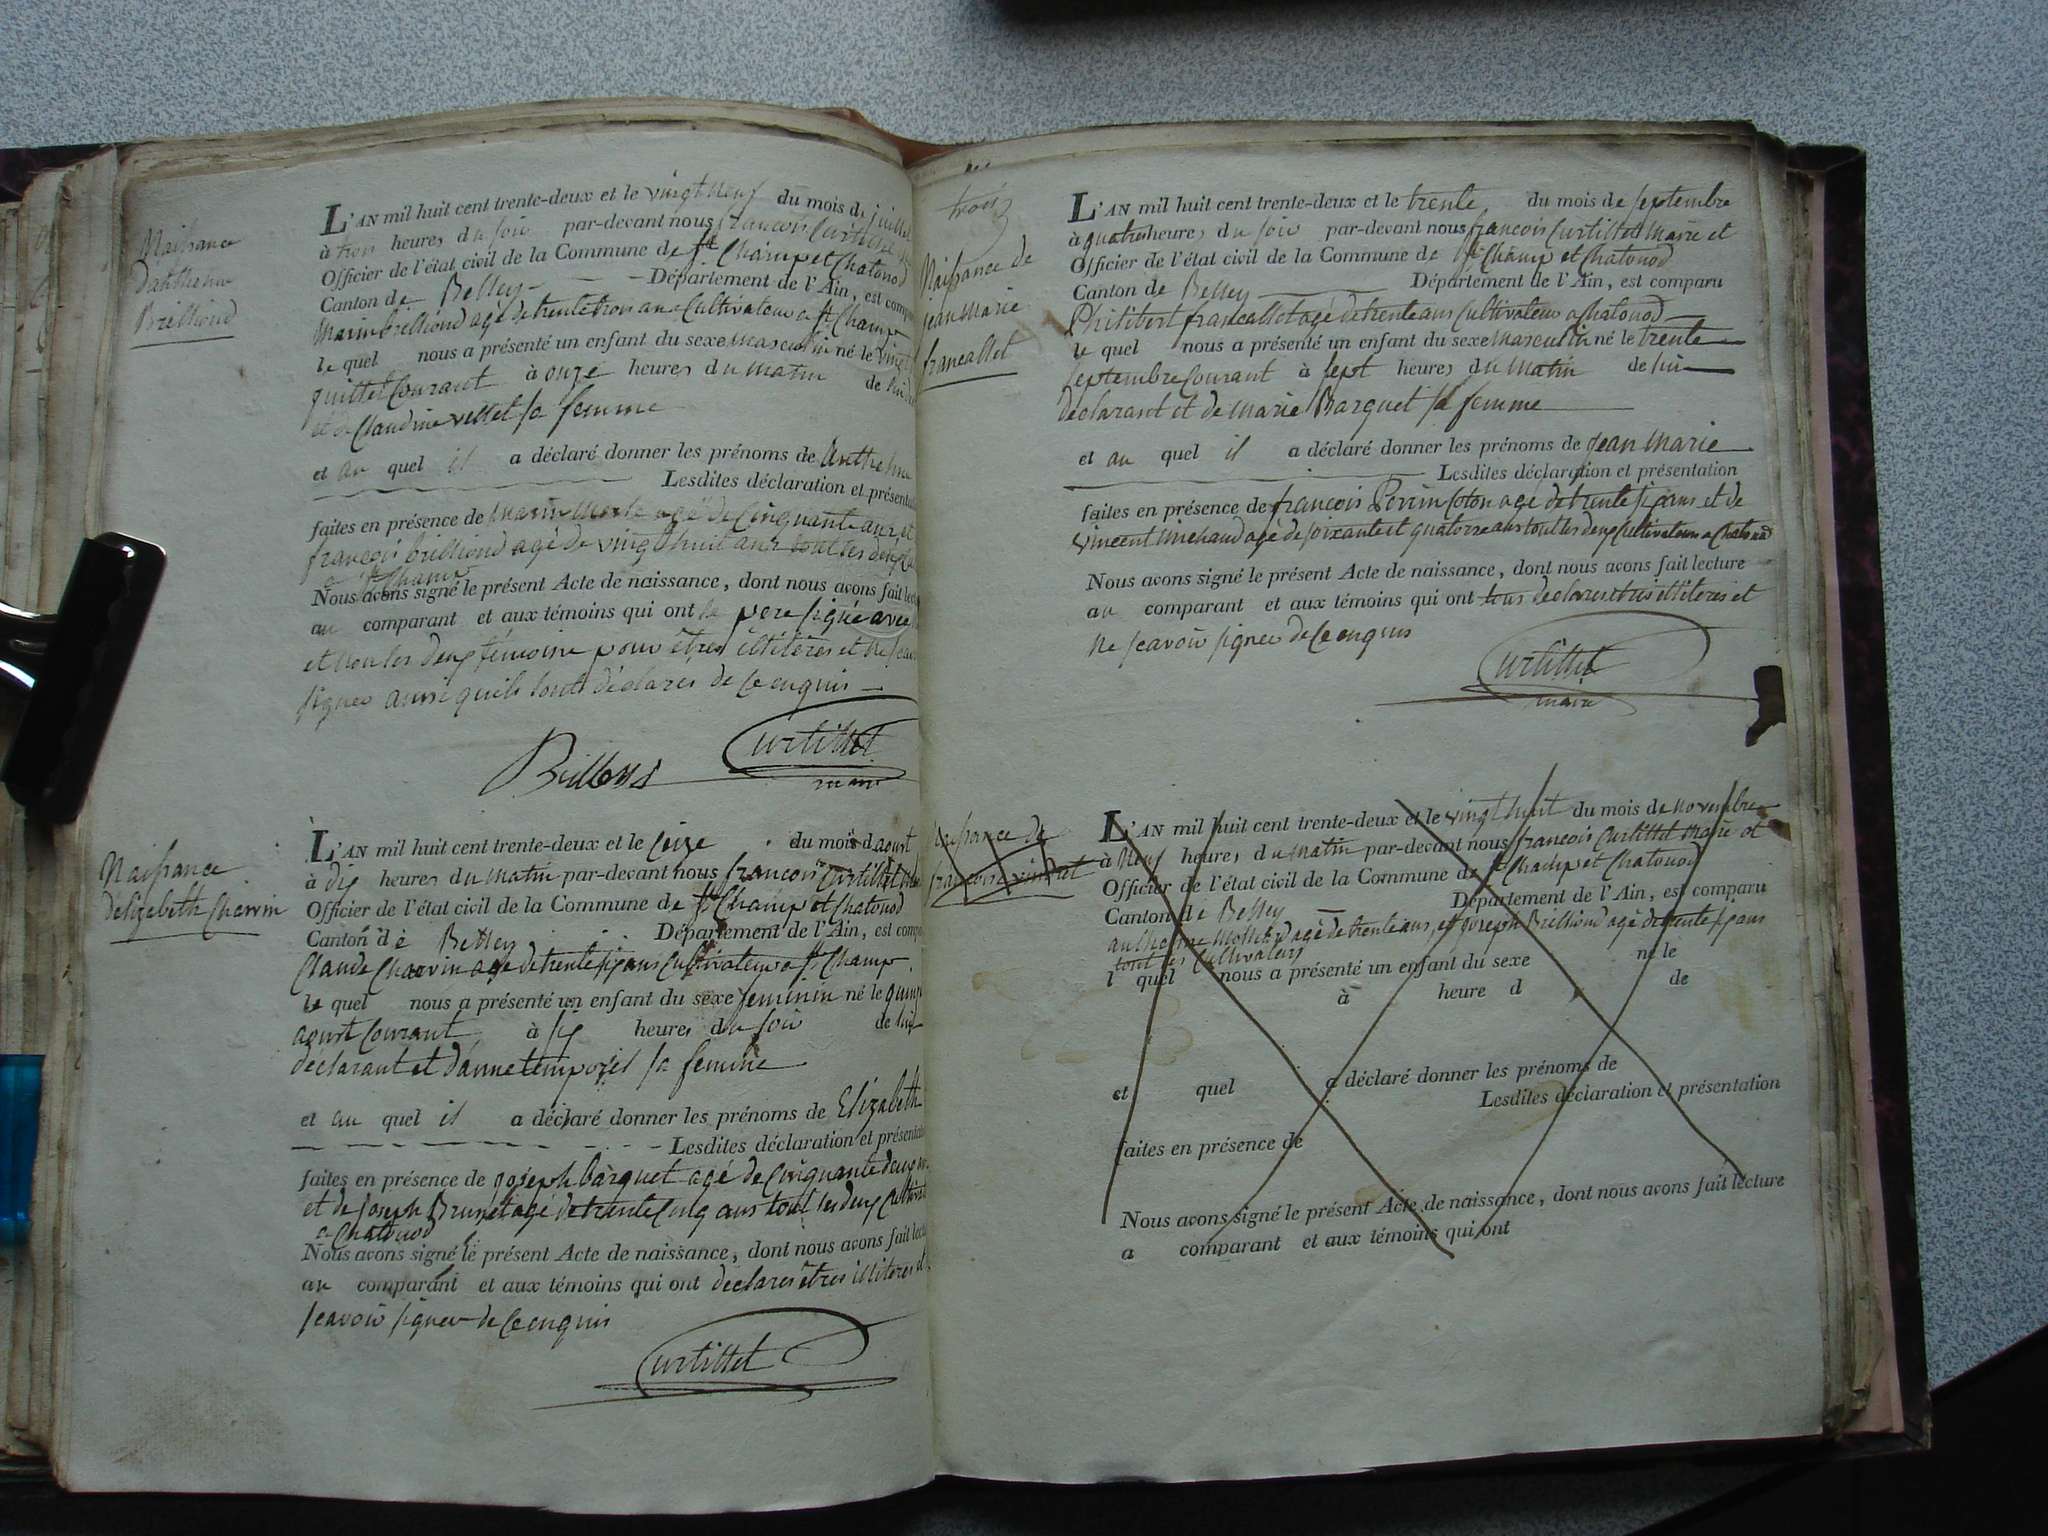 Naissance
D'anthelme
Brilliond
L'AN mil huit cent trente-deux et le vingt neuf du mois de juillet
à trois heures du soir par-devant nous françois Curtillet
Officier de l'état civil de la Commune de St Champ et Chatonod
Canton de Belley Département de l'Ain, est comparu
Marin brilliond agé de trente trois ans Cultivateur a St Champ
le quel nous a présenté un enfant du sexe masculin né le vingt
juillet Courant à onze heures du matin de lui
et de Claudine vettet sa femme
et au quel il a déclaré donner les prénoms de Anthelme
Lesdites déclaration et présentation
faites en présence de Marin agé de Cinquante ans et
françois brilliond agé de vingt huit ans tout les deux
a St Champ
Nous avons signé le présent Acte de naissance, dont nous avons fait lecture
au comparant et aux témoins qui ont le pere signé avec
et non les deux témoins pour êtres illitérés et ne
signer ainsi quils sont déclarés de ce enquis
Brilliond Curtillet
maire
Naissance
delizabeth Charvin
L'AN mil huit cent trente-deux et le seize du mois d aoust
à dix heures du matin par-devant nous françois Curtillet
Officier de l'état civil de la Commune de St Champ et Chatonod
Canton de Belley Département de l'Ain, est comparu
Claude Charvin agé de trente six ans Cultivateur a St Champ
le quel nous a présenté un enfant du sexe feminin né le quinze
aoust Courant à six heures du soir de lui
déclarant et d'anne temporel sa femme
et au quel il a déclaré donner les prénoms de Elizabeth
Lesdites déclaration et présentation
faites en présence de joseph barquet agé de Cinquante deux
et de joseph Brunet agé de trente Cinq ans tout les deux
a Chatonod
Nous avons signé le présent Acte de naissance, dont nous avons fait lecture
au comparant et aux témoins qui ont déclarés êtres illiterés et
sçavoir signer de ce enquis
Curtillet
trois
Naissance de
jean Marie
francallet
L'AN mil huit cent trente-deux et le trente du mois de septembre
à quatre heures du soir par-devant nous françois Curtillet Maire et
Officier de l'état civil de la Commune de St Champ et Chatonod
Canton de Belley Département de l'Ain, est comparu
Philibert francallet agé de trente ans Cultivateur a Chatonod
le quel nous a présenté un enfant du sexe masculin né le trente
septembre Courant à sept heures du matin de lui
déclarant et de marie Barquet sa femme
et au quel il a déclaré donner les prénoms de jean Marie
Lesdites déclaration et présentation
faites en présence de françois Perrin Coton agé de trente six ans et de
vincent Michaud agé de soixante et quatorze ans tout les deux Cultivateurs a Chatonod
Nous avons signé le présent Acte de naissance, dont nous avons fait lecture
au comparant et aux témoins qui ont tous déclarés êtres illitérés et
ne sçavoir signer de ce enquis
Curtillet
maire
naissance de
françoise
L'AN mil huit cent trente-deux et le vingt huit du mois de novembre
à neuf heures du matin par-devant nous françois Curtillet Maire et
Officier de l'état civil de la Commune de St Champ et Chatonod
Canton de Belley Département de l'Ain, est comparu
anthelme agé de trente ans, et joseph Brilliond agé de trente six ans
tout les Cultivateurs
l quel nous a présenté un enfant du sexe né le
à heure d de
et quel a déclaré donner les prénoms de
Lesdites déclaration et présentation
faites en présence de
Nous avons signé le présent Acte de naissance, dont nous avons fait lecture
a comparant et aux témoins qui ont